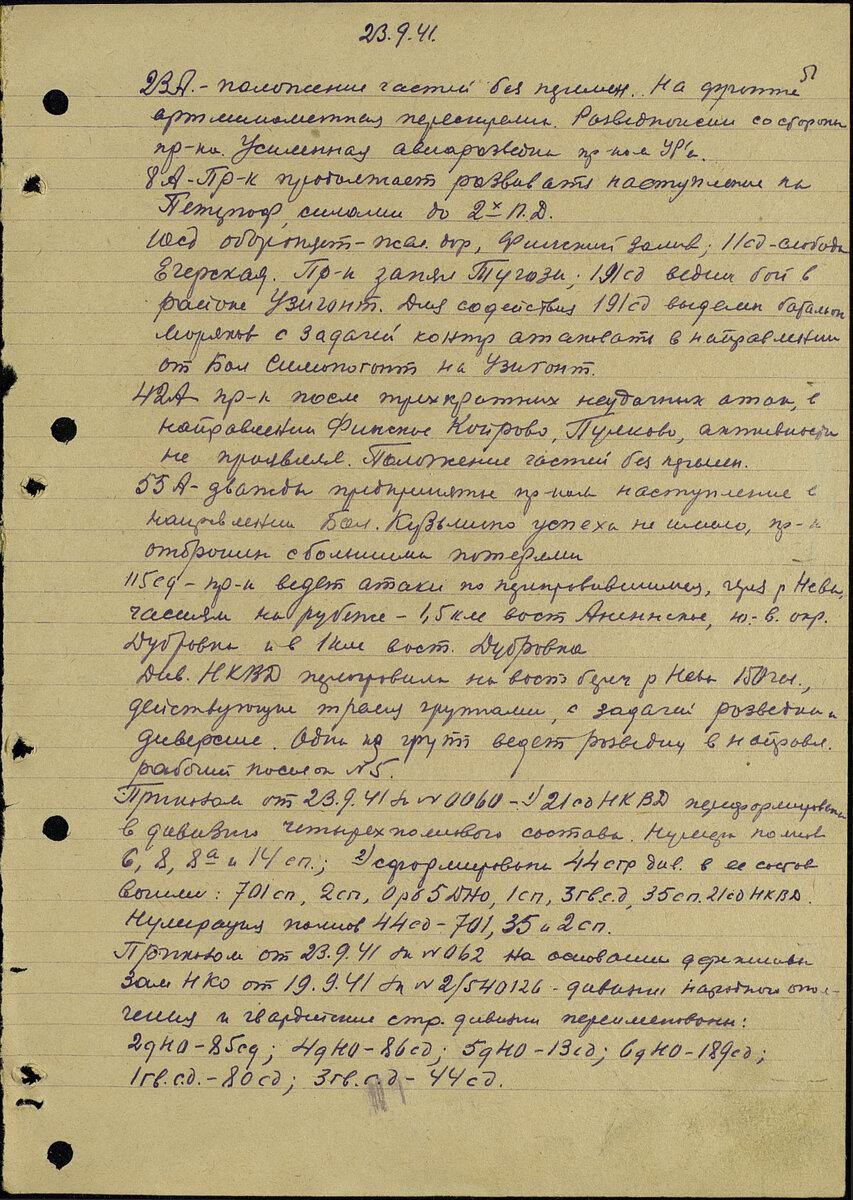 23.9.41.
51
23А. – положение частей без перемен. На фронте
артминометная перестрелка. Разведпоиски со стороны
пр-ка. Усиленная авиаразведка пр-ком УР'а.
8А – Пр-к продолжает развивать наступление на
Петергоф, силами до 2х П.Д.
10сд обороняет – жел. дор, Финский залив; 11сд – слобода
Егерская. Пр-к занял Тугози; 191сд ведет бой в
районе Узигонт. Для содействия 191сд выделен батальон
моряков с задачей контр атаковать в направлении
от Бол Симпогонт на Узигонт.
42А пр-к после трехкратных неудачных атак, в
направлении Финское Койрово, Пулково, активности
не проявлял. Положение частей без перемен.
55А – дважды предпринятые пр-ком наступление в
направлении Бол. Кузьмино успеха не имело, пр-к
отброшен с большими потерями
115сд – пр-к ведет атаки по переправившимся, через р Нева,
частям на рубеже – 1,5 км вост Аненнское, ю.-в. окр.
Дубровка и в 1 км вост. Дубровка
Див. НКВД переправила на вост берег р Нева 150 чел.,
действующие тремя группами, с задачей разведки и
диверсие. Одна из групп ведет разведку в направл.
рабочий поселок №5.
Приказом от 23.9.41 за №0060 – 1) 21сд НКВД переформирована
в дивизию четырехполкового состава. Номера полков
6, 8, 8а и 14 сп.; 2) сформирована 44 стр див. в ее состав
вошли: 701сп, 2сп, орб 5ДНО, 1сп, 3гв.с.д, 35сп. 21сд НКВД.
Нумерация полков 44сд – 701, 35 и 2сп.
Приказом от 23.9.41 за №062 на основании директивы
Зам НКО от 19.9.41 за №2/540126 – дивизии народного опол-
чения и гвардейские стр. дивизии переименованы:
2дНО – 85сд; 4дНО – 86сд; 5дНО – 13сд; 6дНО – 189сд;
1гв.с.д. – 80сд; 3гв.с.д – 44сд.